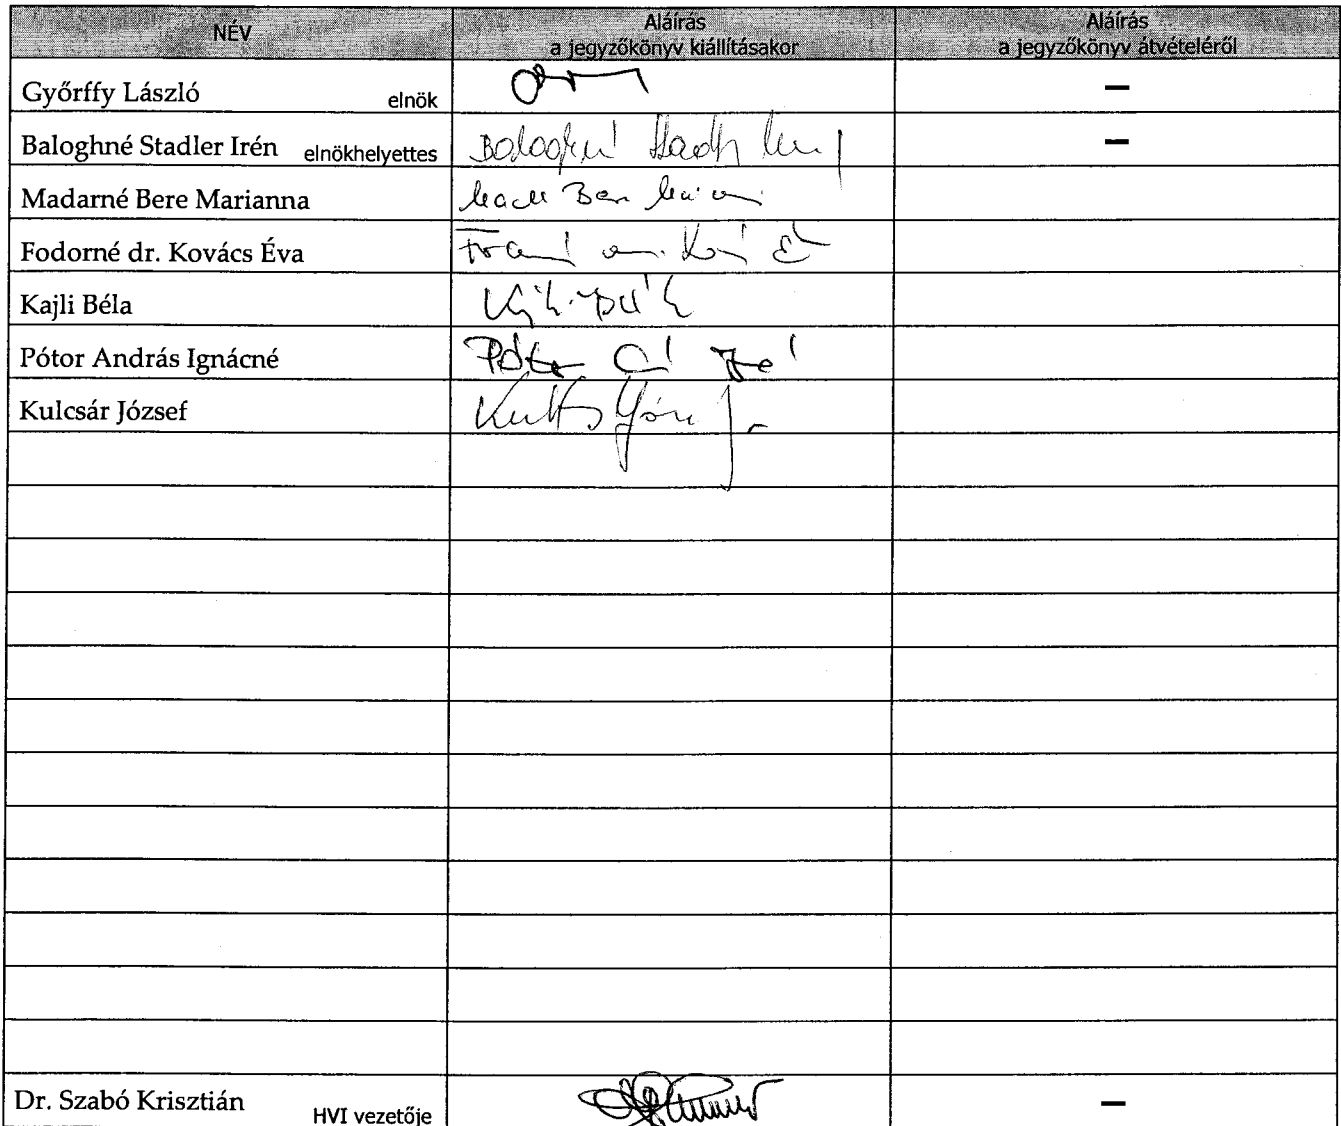 NÉV
Aláírás
a jegyzőkönyv kiállításakor
Aláírás
a jegyzőkönyv átvételéről
Győrffy László elnök –
Baloghné Stadler Irén elnökhelyettes –
Madarné Bere Marianna
Fodorné dr. Kovács Éva
Kajli Béla
Pótor András Ignácné
Kulcsár József
Dr. Szabó Krisztián HVI vezetője –